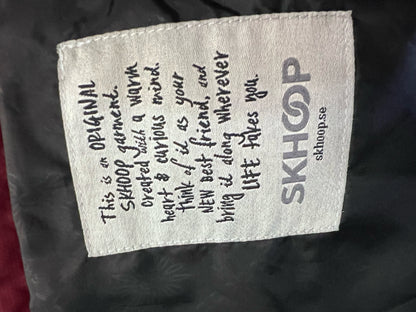 This is an ORIGINAL
SKHOOP garment.
created with a warm
heart & curious mind.
Think of it as your
NEW best friend, and
bring it along wherever
LIFE takes you.
SKHOOP
skhoop.se